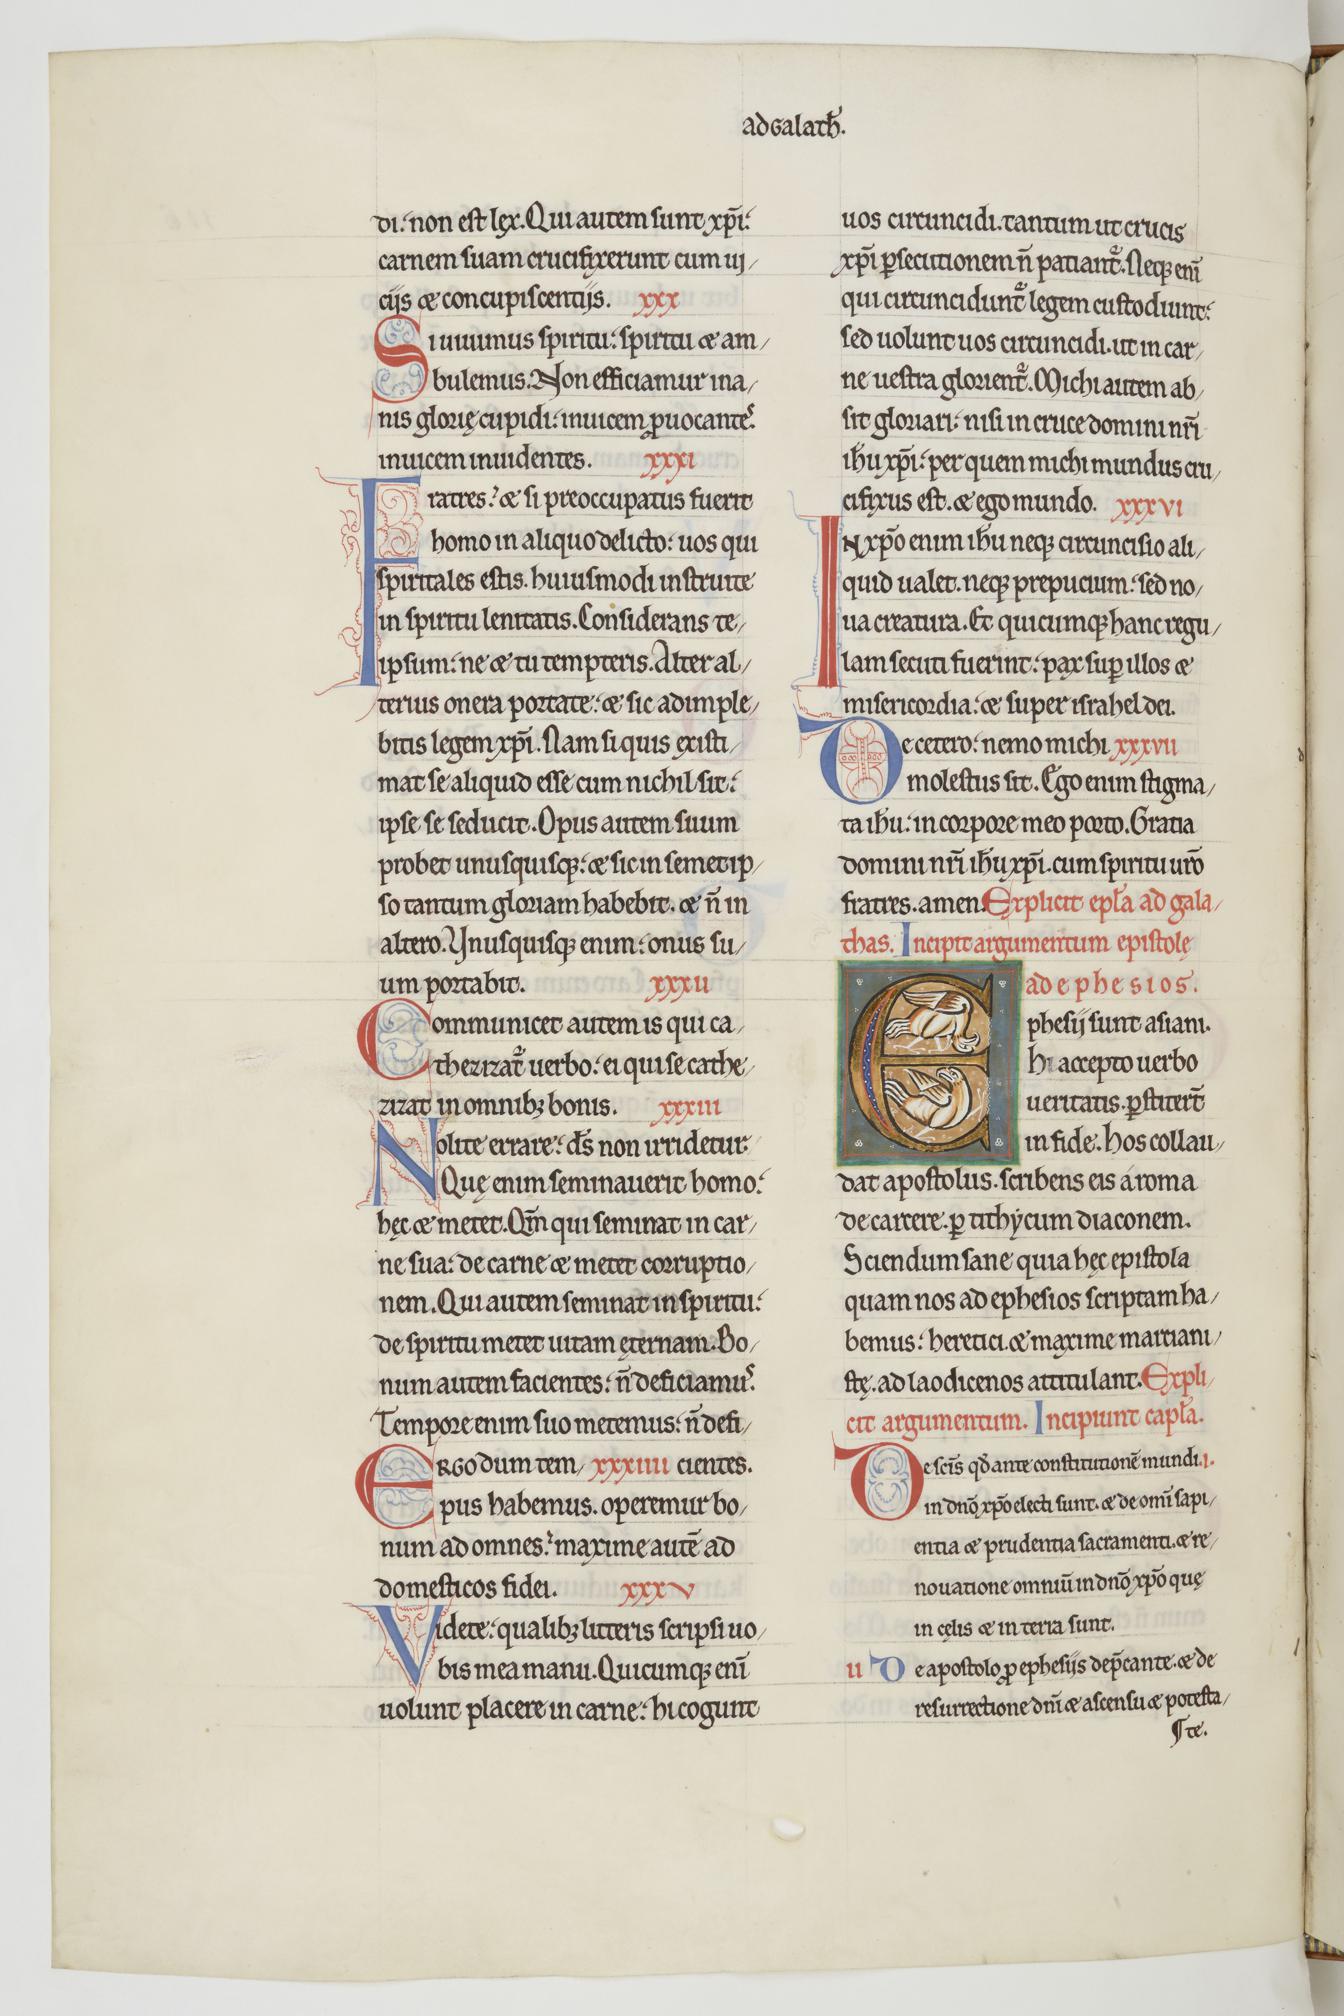 ad Galath̄.
di: non est lex. Qui autem sunt xp̄i:
carnem suam crucifixerunt cum ui/
ciis & concupiscentiis. xxx
Si uiuimus spiritu: spiritu & am/
bulemus. Non efficiamur ina/
nis glorię cupidi: inuicem ꝓuocantes
inuicem inuidentes. xxxi
Fratres: & si preoccupatus fuerit
homo in aliquo delicto: uos qui
spiritales estis. huiusmodi instruite
in spiritu lenitatis. Considerans te/
ipsum: ne & tu tempteris. Alter al/
terius onera portate: & sic adimple/
bitis legem xp̄i. Nam si quis existi/
mat se aliquid esse cum nichil sit:
ipse se seducit. Opus autem suum
probet unusquisq; & sic in semetip/
so tantum gloriam habebit. & n̄ in
altero. Vnusquisq; enim: onus su/
um portabit. xxxii
Communicet autem is qui ca/
thezizat᷑ uerbo: ei qui se cathe/
zizat in omnib; bonis. xxxiii
Nolite errare: d̄s non irridetur.
Quę enim seminauerit homo:
hęc & metet. Qm̄ qui seminat in car/
ne sua: de carne & metet corruptio/
nem. Qui autem seminat in spiritu:
de spiritu metet uitam ęternam. Bo/
num autem facientes: n̄ deficiamus.
Tempore enim suo metemus: n̄ defi/
Ergo dum tem/ xxxiiii cientes.
pus habemus. operemur bo/
num ad omnes: maxime autē ad
domesticos fidei. xxxv
Videte: qualib; litteris scripsi uo/
bis mea manu. Quicumq; eni̅
uolunt placere in carne: hi cogunt
uos circuncidi. tantum ut crucis
xp̄i ꝑsecutionem n̄ patiant᷑. Neq; eni̅
qui circuncidunt᷑ legem custodiunt:
sed uolunt uos circuncidi. ut in car/
ne uestra glorient᷑. Michi autem ab/
sit gloriari: nisi in cruce domini nr̄i
ih̄u xp̄i: per quem michi mundus cru/
cifixus est. & ego mundo. xxxvi
IN xp̄o enim ih̄u neq; circuncisio ali/
quid ualet. neq; prepucium: sed no/
ua creatura. Et quicumq; hanc regu/
lam secuti fuerint: pax sup̄ illos &
misericordia: & super israhel dei.
De cetero: nemo michi xxxvii
molestus sit. Ego enim stigma/
ta ih̄u: in corpore meo porto. Gratia
domini nr̄i ih̄u xp̄i. cum spiritu ur̄o
fratres. amen. Explicit epl̄a ad gala/
thas. Incipit argumentum epistolę
ad ephesios.
Ephesii sunt asiani.
hi accepto uerbo
ueritatis. ꝑstiterт̄
in fide: hos collau/
dat apostolus. scribens eis á roma
de carcere. ꝑ tithẏcum diaconem.
Sciendum sane quia hęc epistola
quam nos ad ephesios scriptam ha/
bemus: heretici. & maxime marciani/
stę. ad laodicenos attitulant. Expli/
cit argumentum. Incipiunt capl̄a.
De scīs qd̄ ante constitutionē mundi .i.
in dn̄o xp̄o electi sunt. & de omi̅ sapi/
entia & prudentia sacramenti. & re/
nouatione omniū in dn̄o xp̄o quę
in cęlis & in terra sunt.
ii De apostolo ꝓ ephesiis dep̄cante. & de
resurrectione dn̄i & ascensu & potesta/
te.